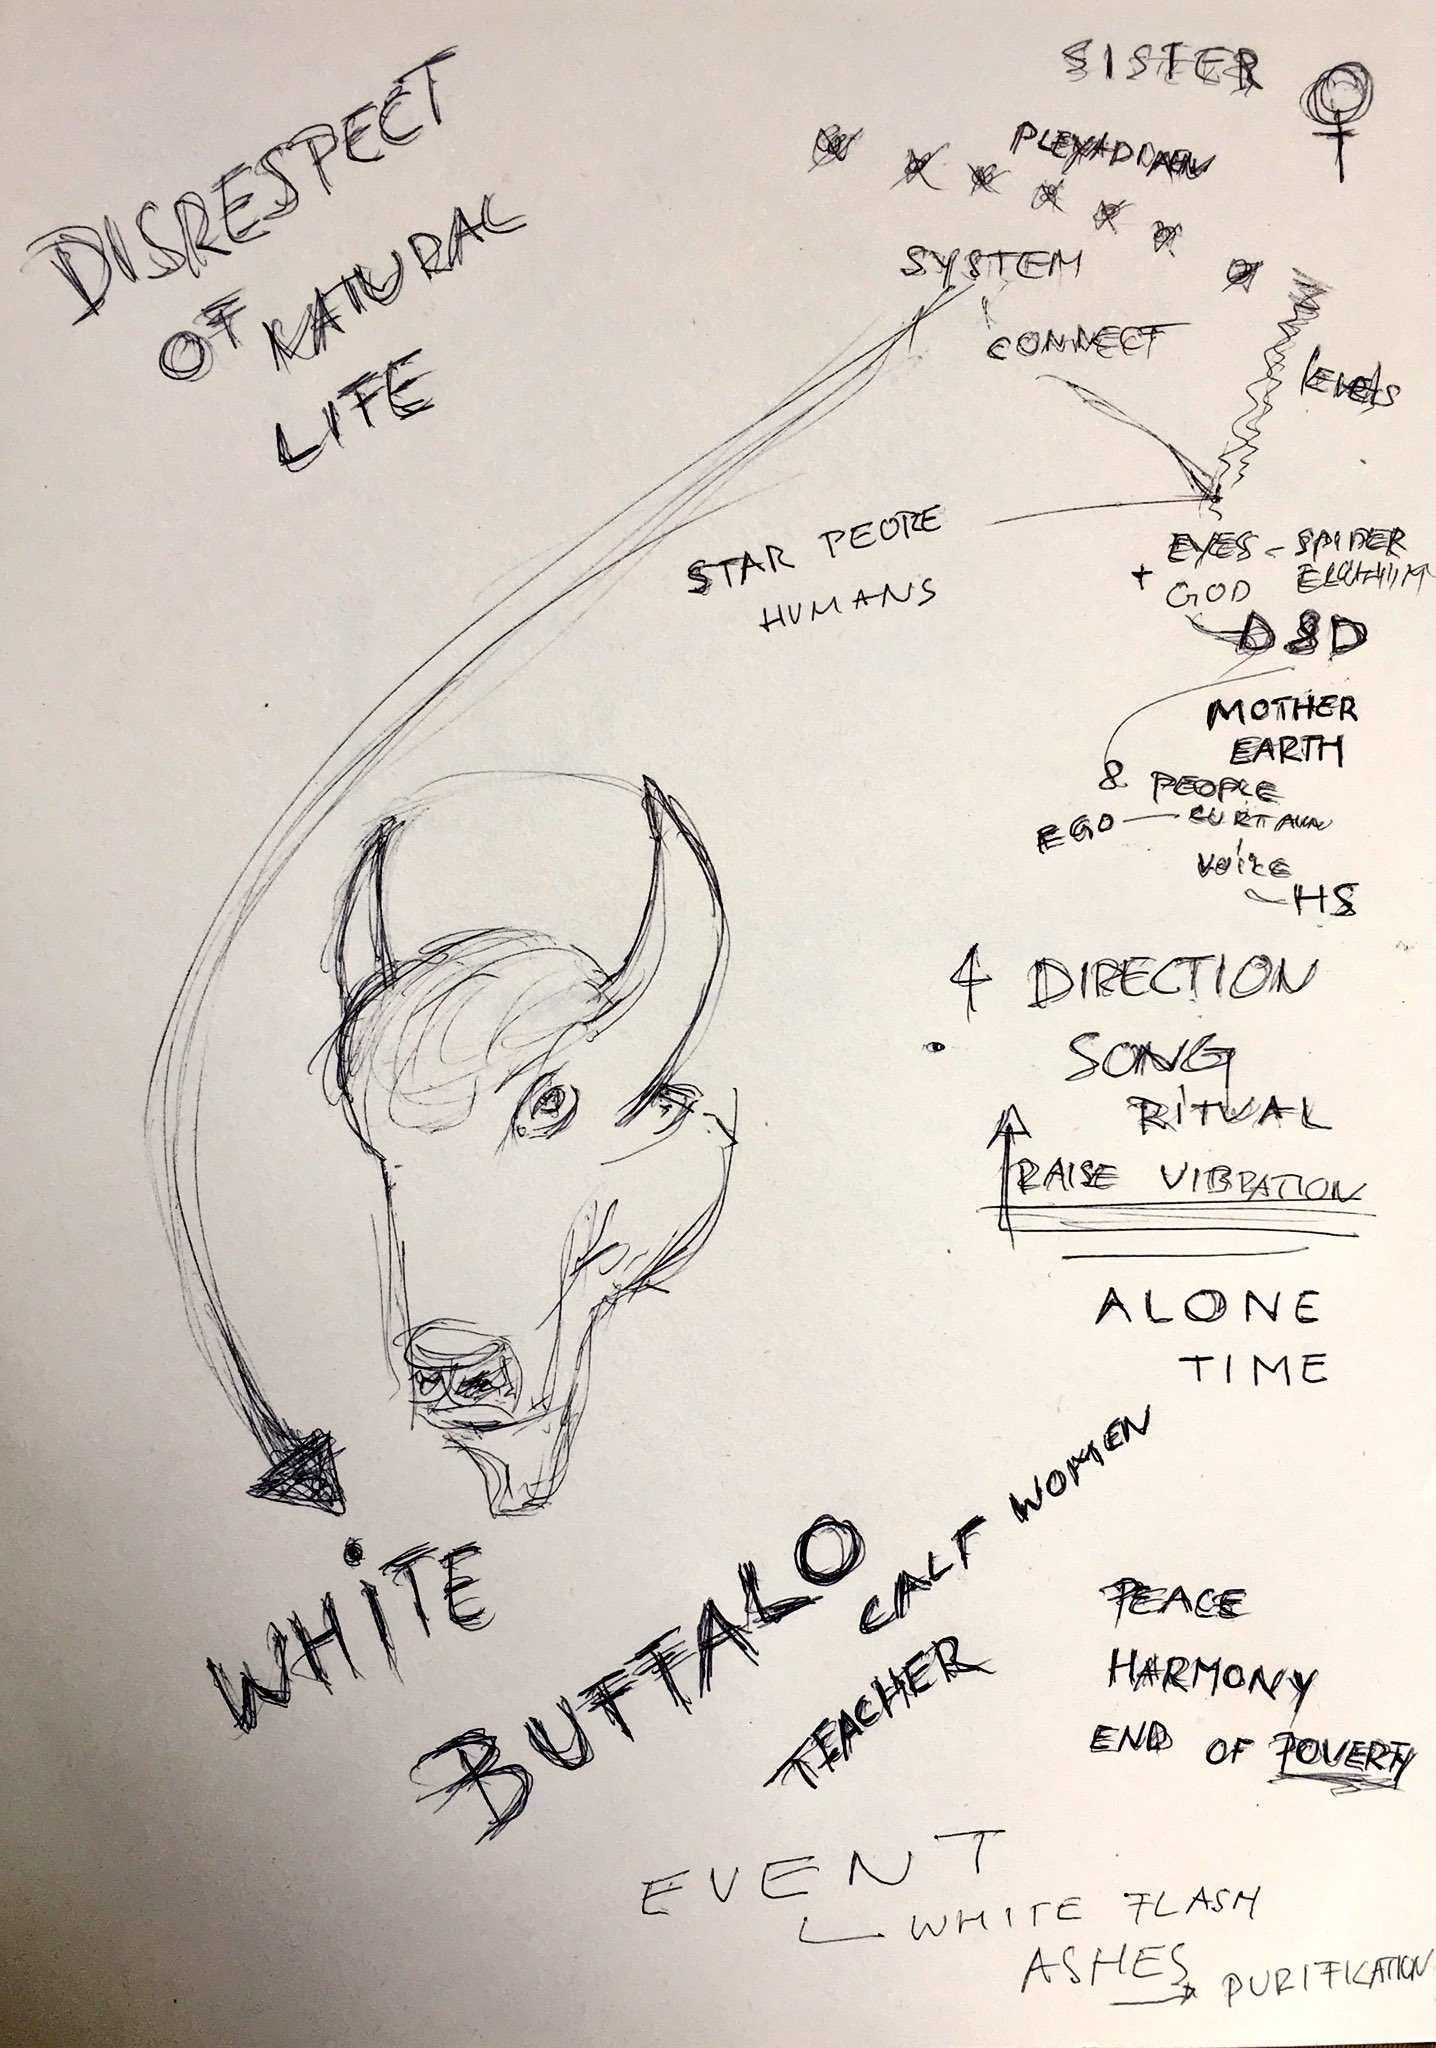 DISRESPECT
OF NATURAL
LIFE
SISTER
PLEYADDIAEN
SYSTEM
CONNECT
levels
STAR PEOPLE
HUMANS
EYES - SPIDER
+ GOD ELOHIIM
D&D
MOTHER
EARTH
& PEOPLE
EGO —
VOiCE
HS
4 DIRECTION
SONG
RiTUAL
RAISE VIBRATION
ALONE
TIME
WHiTE
BUFFALO
CALF WOMEN
TEACHER
PEACE
HARMONY
END OF POVERTY
EVENT
WHITE FLASH
ASHES → PURIFICATION